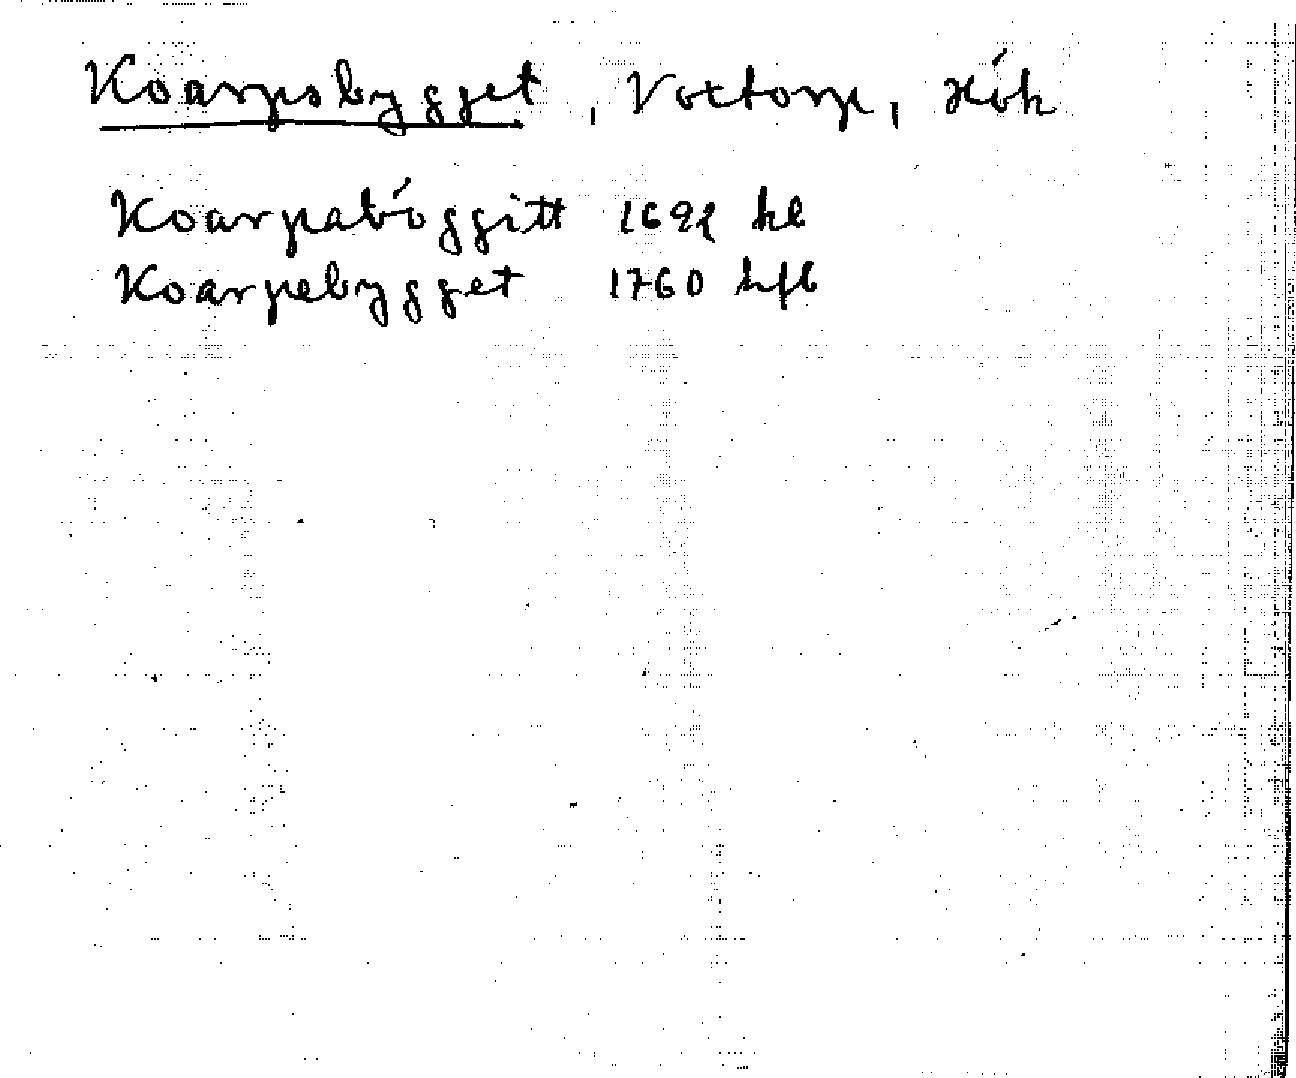 Koarpsbygget, Voxtorp, Hök
Koarpaböggitt 1691 kl
Koarpebygget 1760 hfl